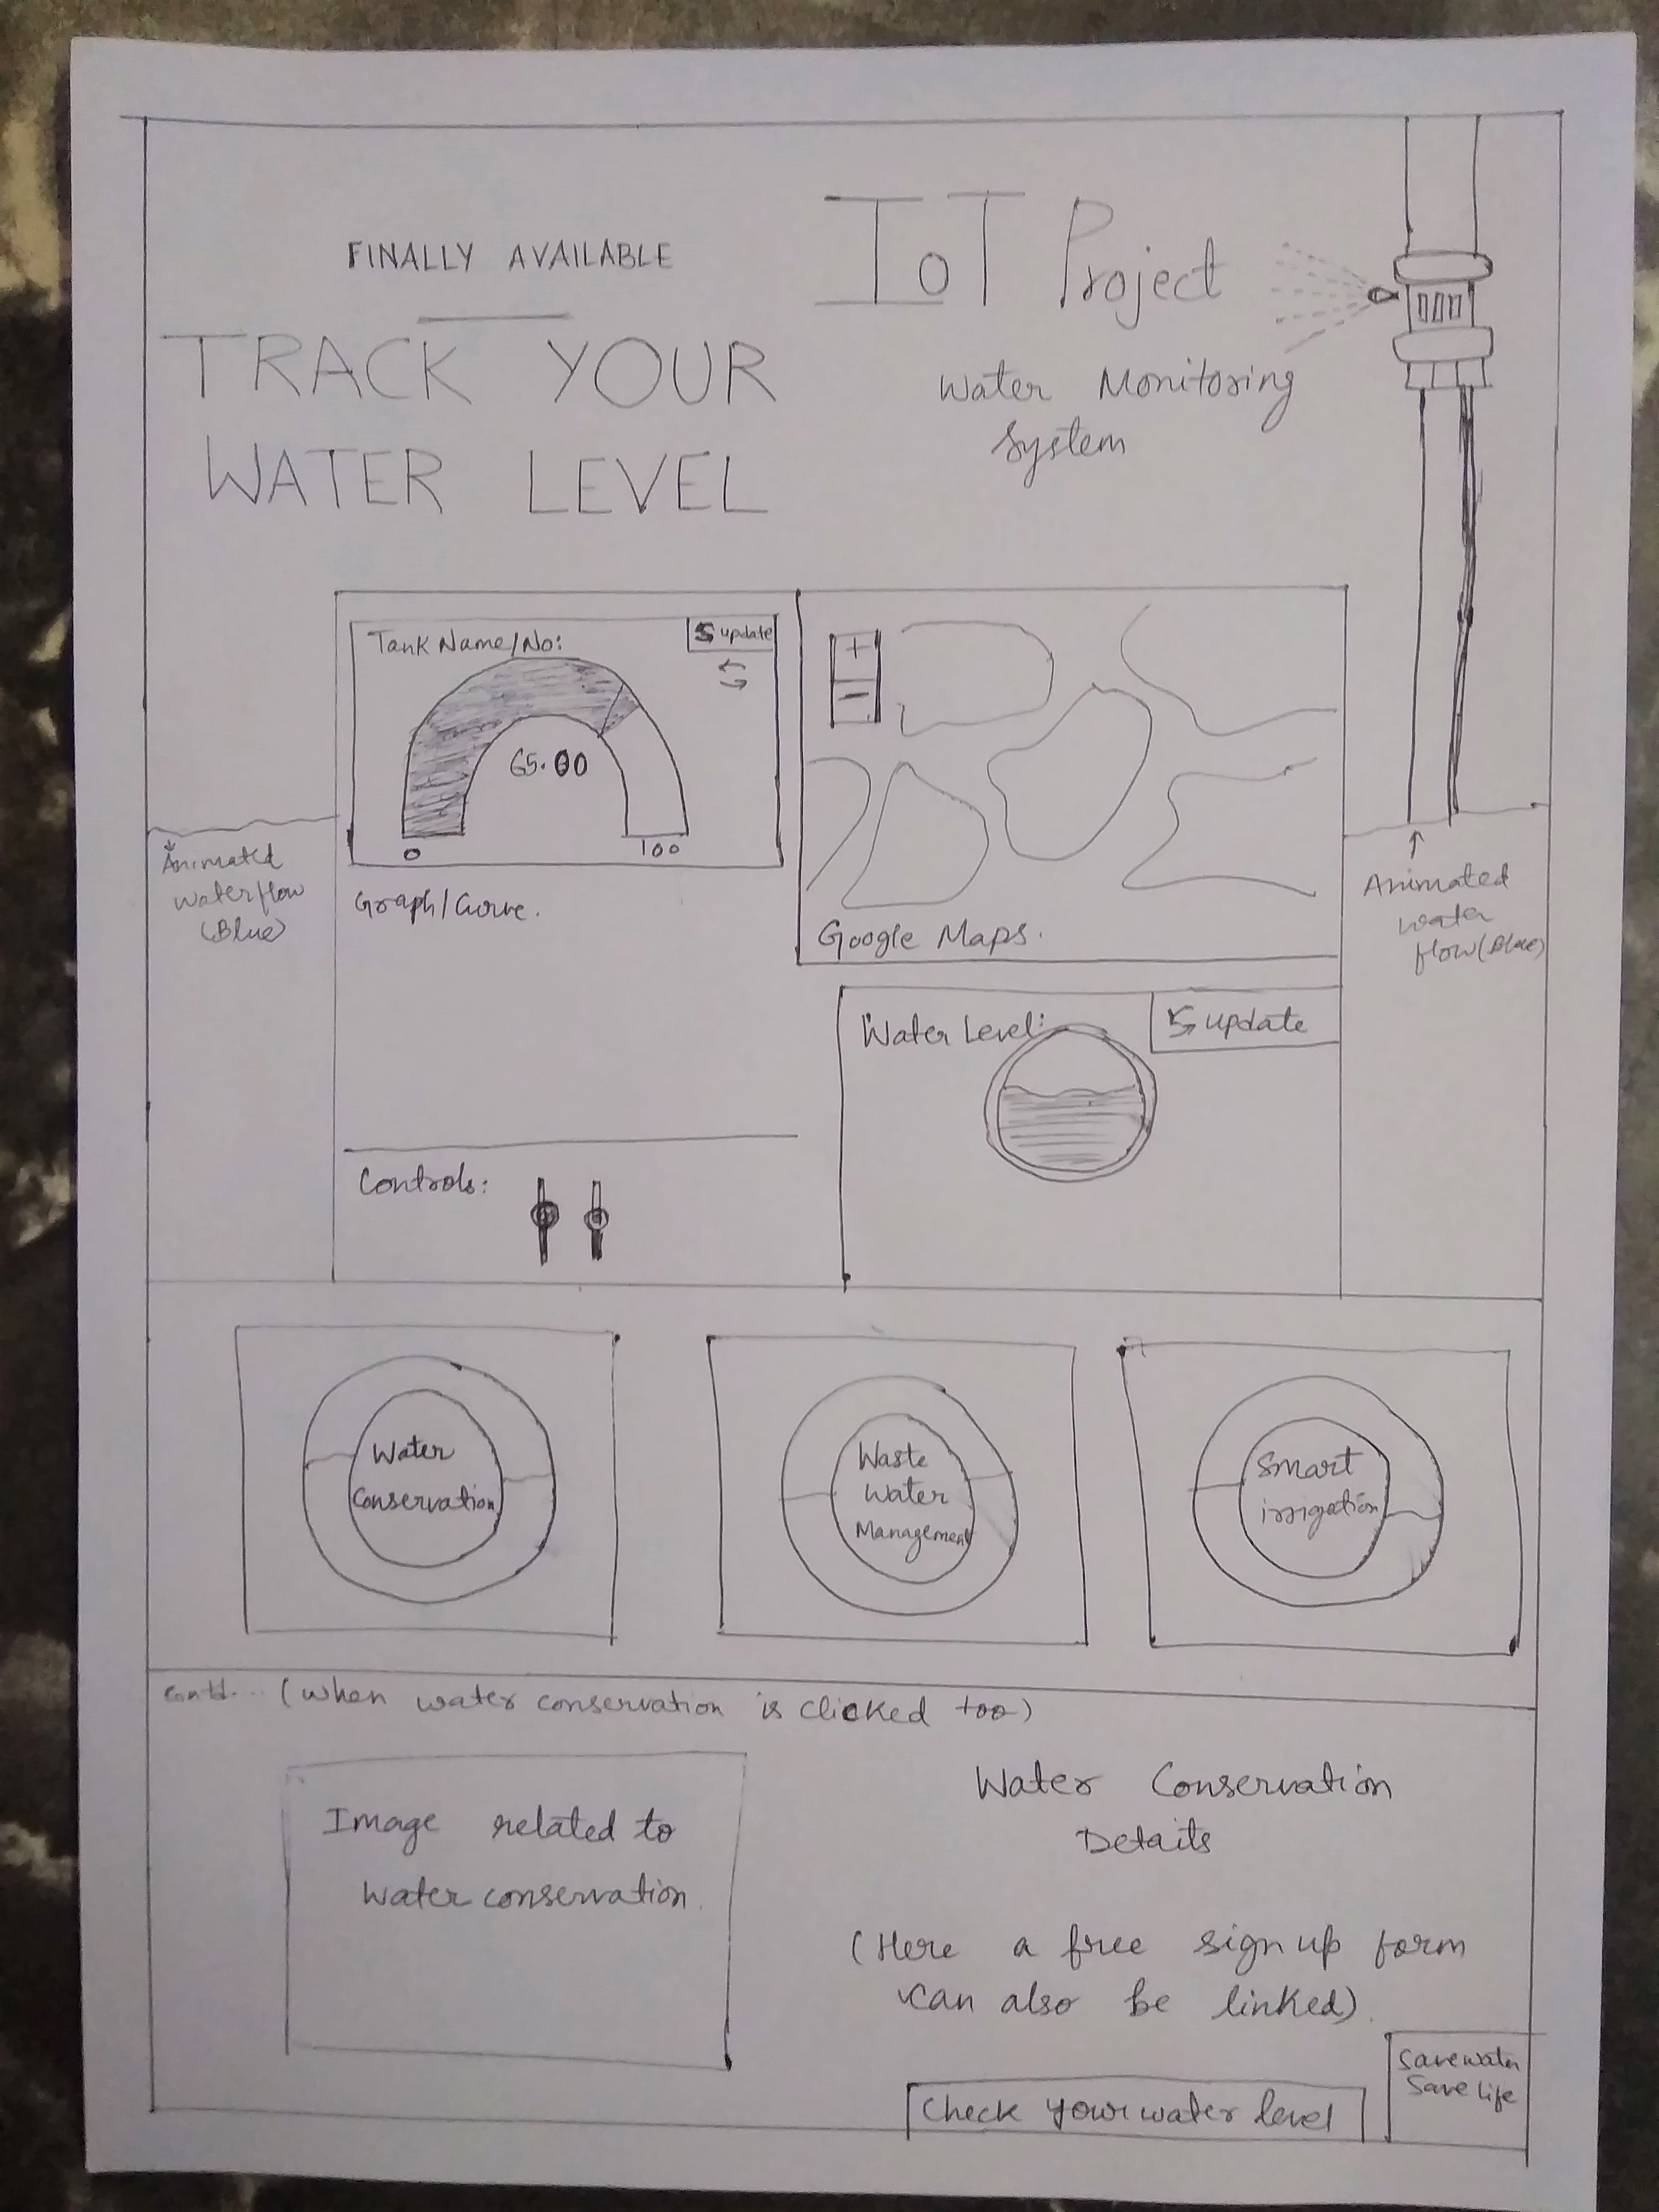 FINALLY AVAILABLE
TRACK YOUR
WATER LEVEL
IoT Project
Water Monitoring
System
Tank Name/No:
update
65.00
0
100
Graph/Curve.
Controls:
+
-
Google Maps.
Water Level:
update
Animated
waterflow
(Blue)
Animated
water
flow(Blue)
Water
Conservation
Waste
Water
Management
Smart
irrigation
contd... (when water conservation is clicked too)
Image related to
water conservation.
Water Conservation
Details
(Here a free sign up form
can also be linked).
Check your water level
Save water
Save life